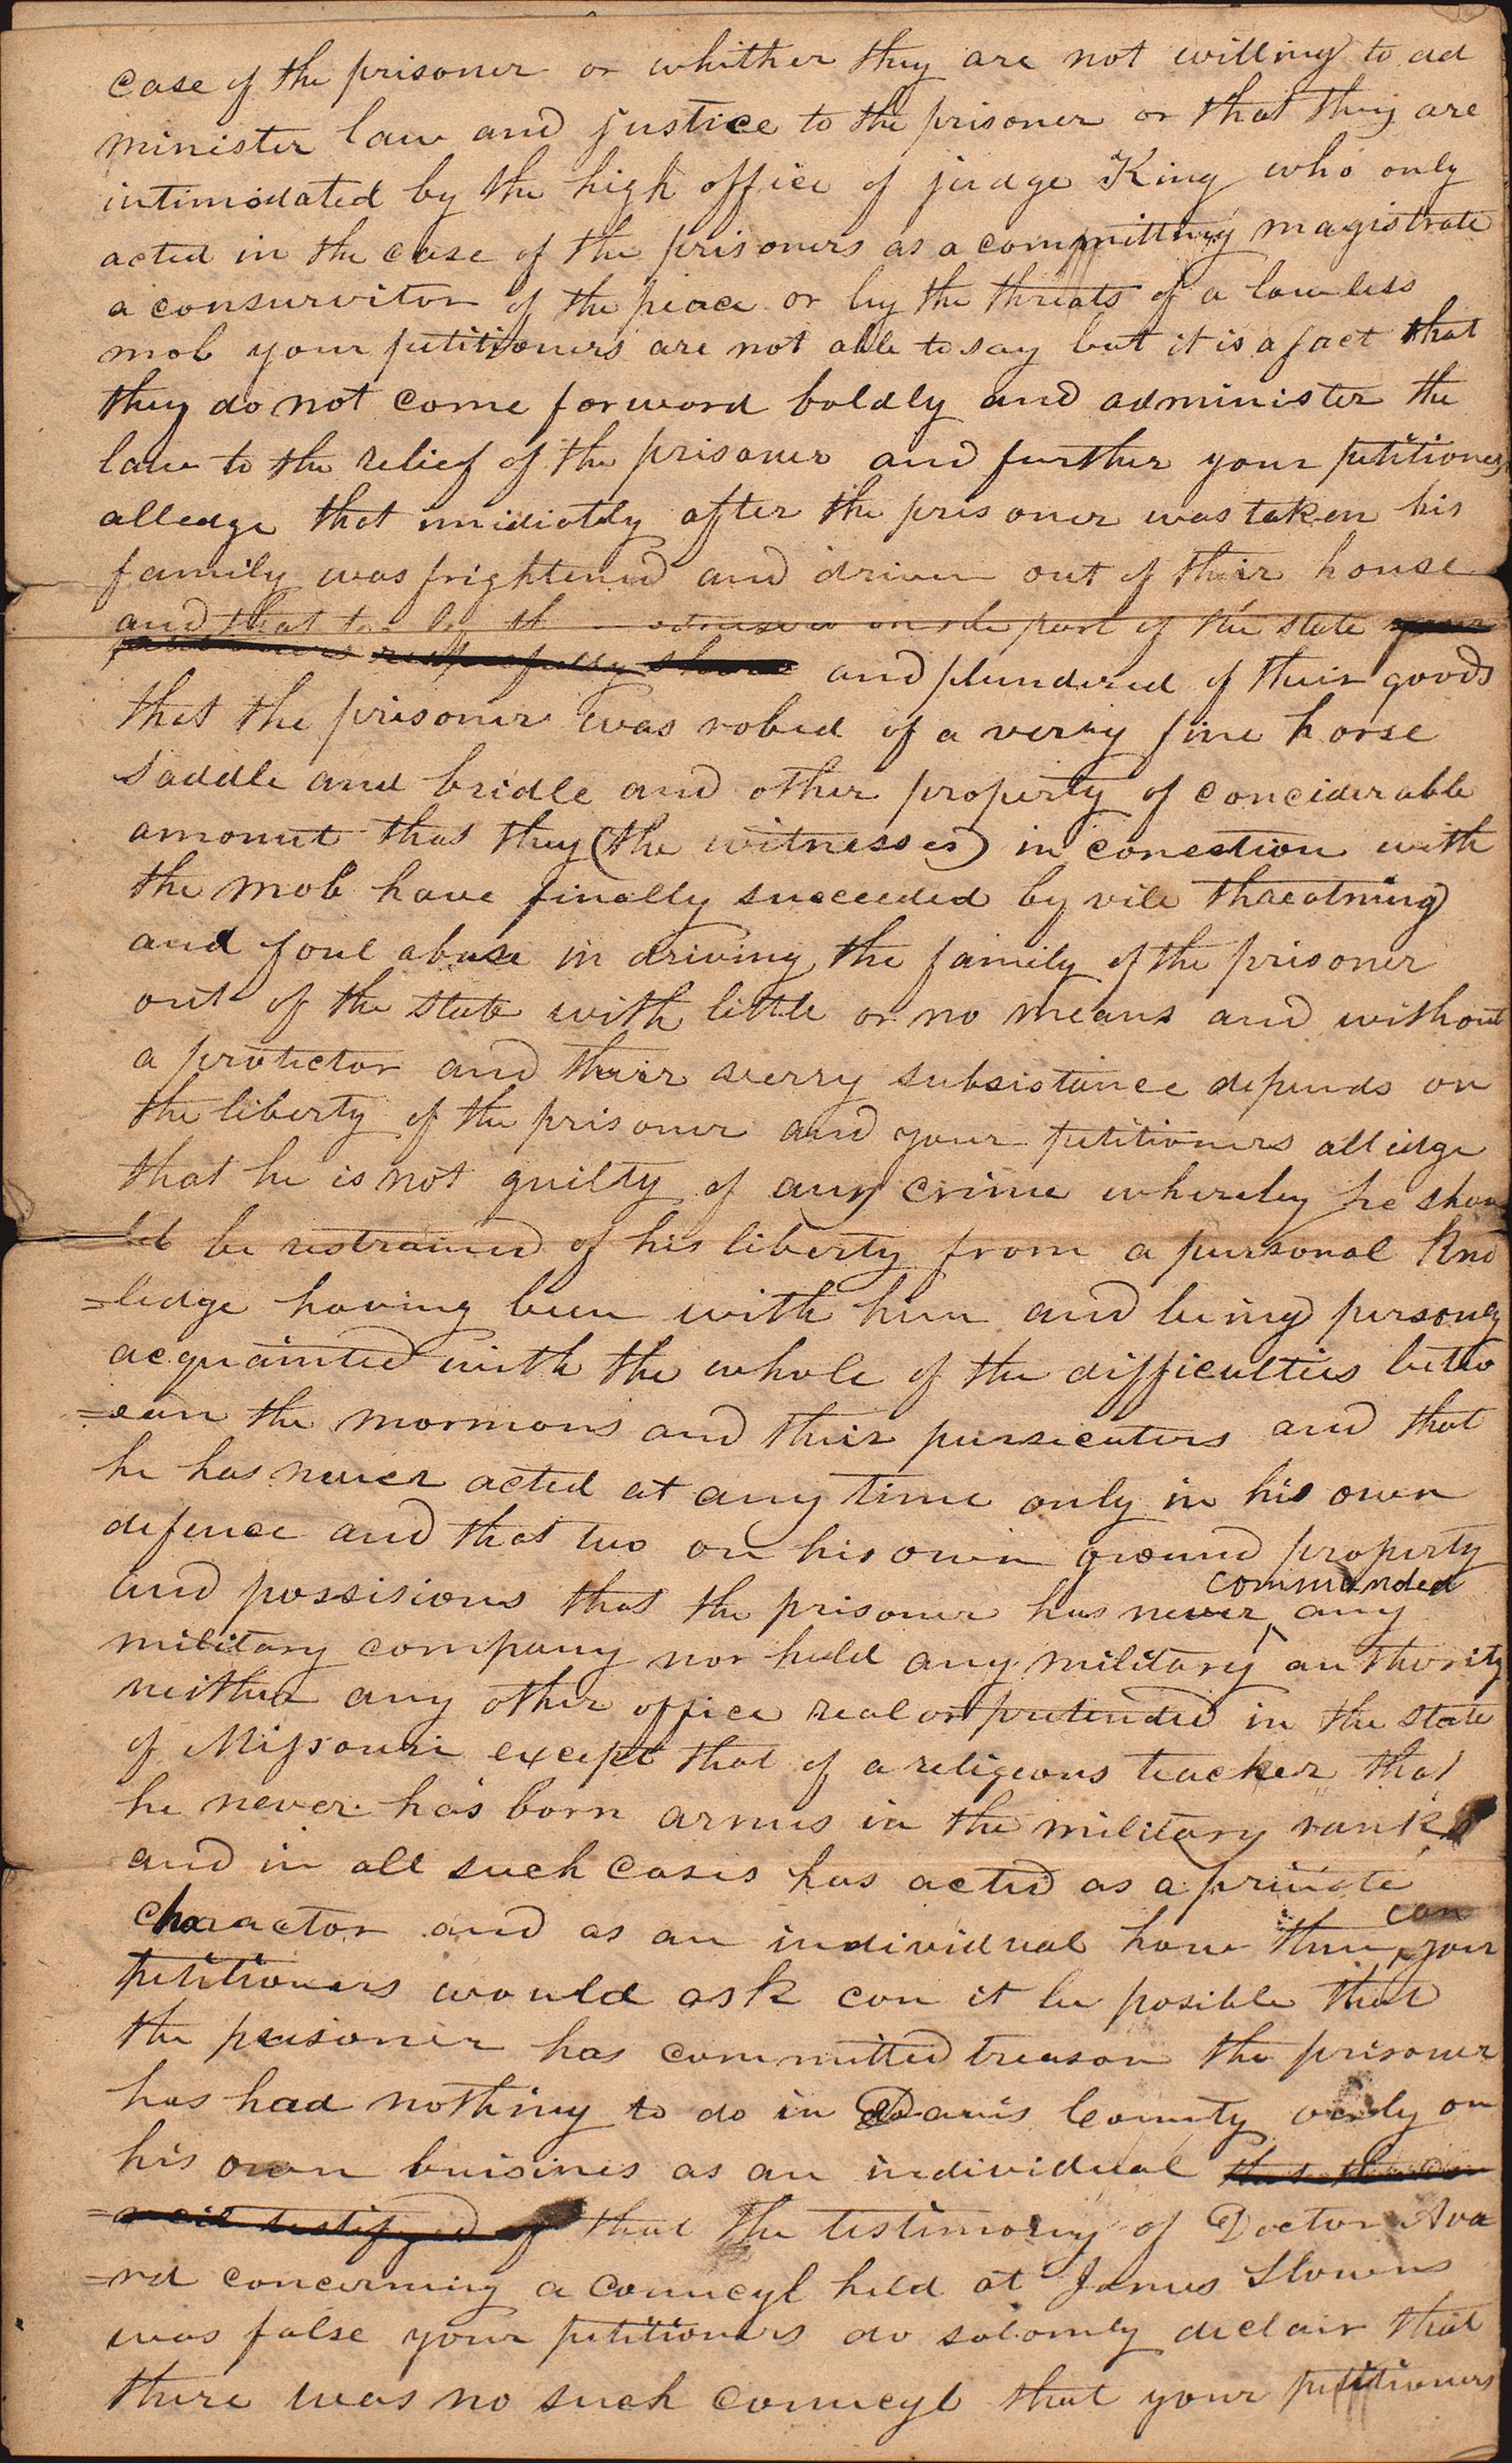 case of the prisoner or whither they are not willing to ad
minister law and justice to the prisoner or that they are
intimidated by the high office of judge King who only
acted in the case of the prisoners as a committing magistrate
a consurvitor of the peace or by the threats of a lawless
mob your petitioners are not able to say but it is a fact that
they do not come forword boldly and administer the
law to the relief of the prisoner and further your petitioners
alledge that imidiatly after the prisoner was taken his
family was frightened and driven out of their house
and that too by the witnesses on the part of the state your
petitioners respectfully show and plundered of their goods
that the prisoner was robed of a verry fine horse
saddle and bridle and other property of conciderable
amount that they (the witnesses) in conection with
the mob have finally succeeded by vile threatning
and foul abuse in driving the family of the prisoner
out of the state with little or no means and without
a protector and their verry subsistance depends on
the liberty of the prisoner and your petitioners alledge
that he is not guilty of any crime whereby he shou
ld be restrained of his liberty from a personal Kno
=ledge having been with him and being personly
acquainted with the whole of the difficulties betw
=een the mormons and their pursicuters and that
he has never acted at any time only in his own
defence and that too on his own ground property
and possisions that the prisoner has never commanded any
military company nor held any military authority
neither any other office real or pretended in the state
of Missouri except that of a religeous teacher that
he never has born armes in the military rank
and in all such cases has acted as a private
charactor and as an individual how then can your
petitioners would ask can it be posible that
the prisoner has committed treason the prisoner
has had nothing to do in Davis County only on
his own buisines as an individual
that the testimony of Doctor Ava
=rd concerning a councyl held at James Slowns
was false your petitioners do solomly declair that
there was no such councyl that your petitioners